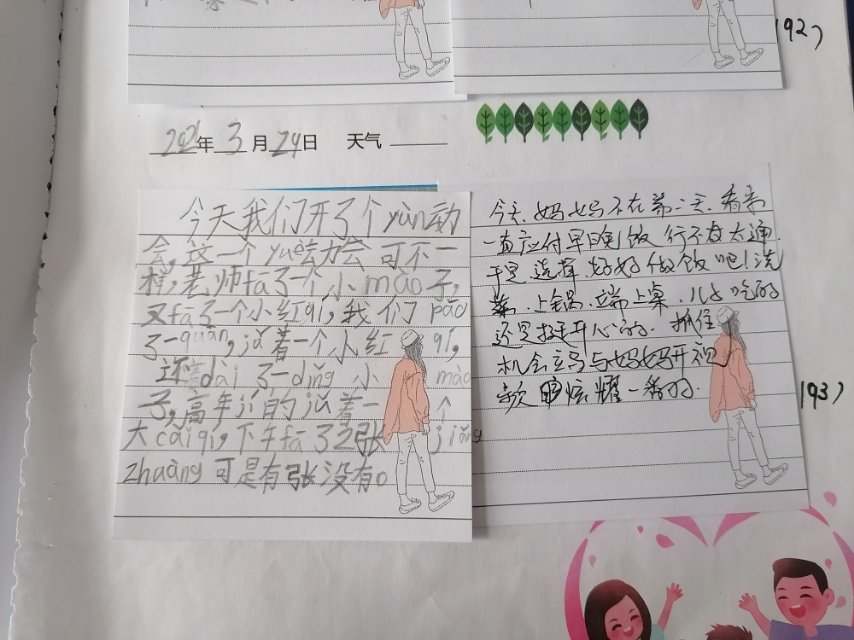 192)
2021年3月24日 天气
今天我们开了个yùn动
会,这一个yuè动会可不一
样,老师fā了一个小mào子,
又fā了一个小红qí,我们pǎo
了一quān,jǔ着一个小红qí,
还dài了一dǐng小mào
子,高年jí的jǔ着一个
大cǎiqí,下午fā了2张jiǎng
zhuàng可是有张没有。
今天妈妈不在第二天,看来
一直应付早晚饭行不太通,
于是选择好好做饭吧!洗
菜、上锅、端上桌,儿子吃的
还是挺开心的。抓住
机会立马与妈妈开视
频炫耀一番的
193)